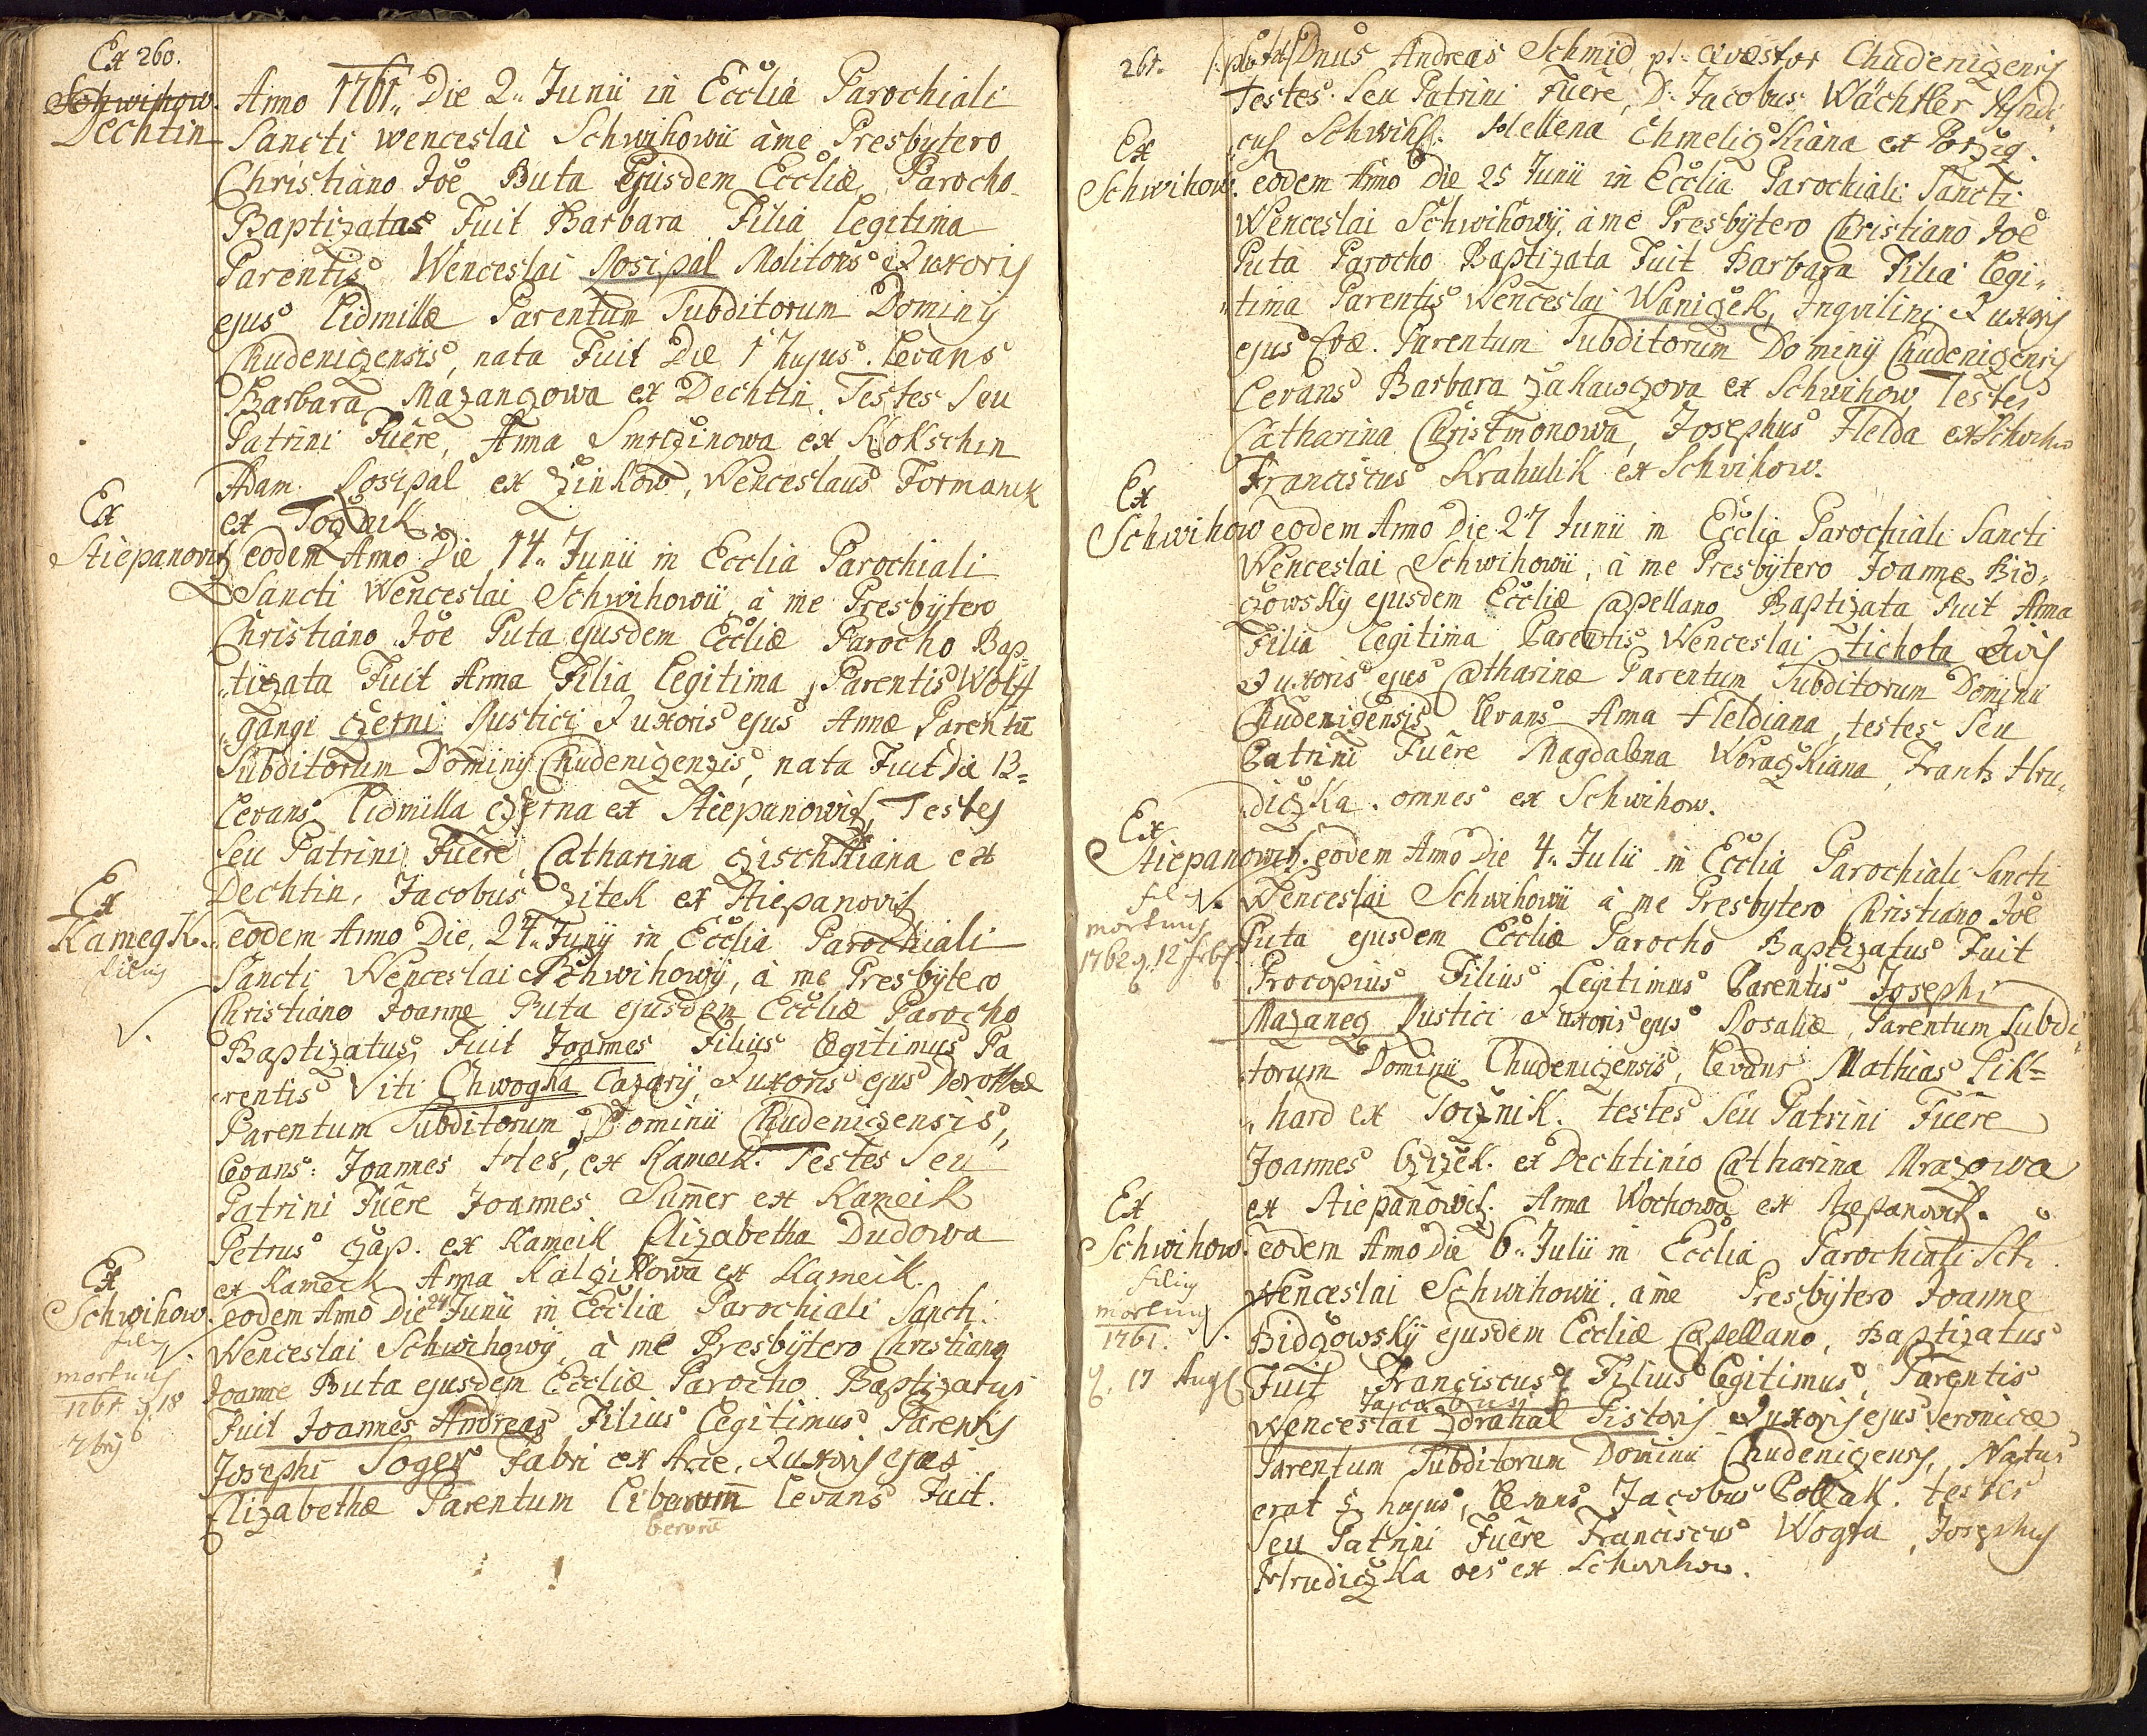 Ex 260.
Schwihow.
Dechtin
Anno 1761. Die 2. Junii in Ecclia Parochiali
Sancti Wenceslai Schwihowii à me Presbytero
Christiano Joe Buta Ejusdem Eccliæ Parocho
Baptizatas Fuit Barbara Filia legitima
Parentis Wenceslai Rosipal Molitoris & uxoris
ejus Lidmillæ Parentum Subditorum Dominij
Chudenizensis, nata Fuit Die 1 hujus. levans
Barbara Mazanzowa ex Dechtin. Testes Seu
Patrini Fuêre, Anna Smrzinowa ex Kokschin
Adam Rosipal ex Zinkow, Wenceslaus Formanek
ex Toznik.
Ex
Stiepanovitz
eodem Anno Die 14. Junii in Ecclia Parochiali
Sancti Wenceslai Schwihowii à me Presbytero
Christiano Joe Puta ejusdem Eccliæ Parocho Bap„
„tizata Fuit Anna Filia legitima Parentis Wolff
„gangi Czerni Rustici & uxoris ejus Annæ Parentū
Subditorum Dominij Chudenizenzis, nata Fuit Die 13=
levans Lidmilla Czerna ex Stiepanowitz, Testes
Seu Patrini Fuêre Catharina Zischkiana ex
Dechtin, Jacobus Zitek ex Stiepanovitz
Ex
Kamegk.
filius
eodem Anno Die, 24. Junij in Ecclia Parochiali
Sancti Wenceslai Schwihowij, à me Presbytero
Christiano Joanne Puta ejusdem Eccliæ Parocho
Baptizatus Fuit Joannes Filius legitimus Pa
„rentis Viti Chwogka Cazarij, & uxoris ejus Dorotheæ
Parentum Subditorum Dominii Chudenizensis,
levans: Joannes Hes, ex Kameik. Testes Seu
Patrini Fuêre Joannes Sumer ex Kameik
Petrus Zap. ex Kameik Elizabetha Dudowa
ex Kameck Anna Kalzikowa ex Kameik.
Ex
Schwihow.
filius
mortuus
1761 9. 18
7bris
eodem Anno Die 24 Junii in Ecclia Parochiali Sancti
Wenceslai Schwihowij, à me Presbytero Christiano
Joanne Buta ejusdem Eccliæ Parocho Baptizatus
Fuit Joannes Andreas Filius legitimus Parentis
Josephi Soger Fabri ex Arce, & uxoris ejus
Elizabethæ Parentum liberum levans Fuit.
berorū
261. Dnus Andreas Schmid p.t. Quæstor Chudenizensis
Testes Seu Patrini Fuêre, D. Jacobus Wächtler Syndi„
„cus Schwih. Hellena Chmelizkiana ex Borzig.
Ex
Schwihow.
eodem Anno Die 25 Junii in Ecclia Parochiali Sancti
Wenceslai Schwihowij, à me Presbytero Christiano Joe
Puta Parocho Baptizata Fuit Barbara Filia legi„
„tima Parentis Wenceslai Wanizek, Inquilini & uxoris
ejus Evæ. Parentum Subditorum Dominij Chudenizensis
levans Barbara Zakawzova ex Schwihow Testes
Catharina Christmonowa, Josephus Flelda ex Schwihow
Franciscus Krahulik ex Schvihow.
Ex
Schwihow
eodem Anno Die 27 Junii in Ecclia Parochiali Sancti
Wenceslai Schwihowii, à me Presbytero Joanne Bid„
zowsky ejusdem Eccliæ Capellano Baptizata Fuit Anna
Filia legitima Parentis Wenceslai Tichota Civis
& uxoris ejus Catharinæ Parentum Subditorum Dominii
Chudenizensis levans Anna Fleldiana, testes Seu
Patrini Fuêre Magdalena Worazkiana, Frantz Hru„
„dizka. omnes ex Schwihow.
Ex
Stiepanowitz.
fil
mortuus
1762 9. 12 febr.
eodem Anno Die 4. Julii in Ecclia Parochiali Sancti
Wenceslai Schwihowii à me Presbytero Christiano Joe
Puta ejusdem Eccliæ Parocho Baptizatus Fuit
Procopius Filius legitimus Parentis Josephi
Mazaneg Rustici & uxoris ejus Rosaliæ, Parentum Subdi„
„torum Dominii Chudenizensis, levans Mathias Pik=
„hard ex Toznik. testes Seu Patrini Fuêre
Joannes Czizek. ex Dechtinio Catharina Mrazowa
ex Stiepanovitz. Anna Wochowa ex Stepanovitz.
Ex
Schwihow.
filius
mortuus
1761.
9. 17 Aug
eodem Anno Die 6. Julii in Ecclia Parochiali Scti
Wenceslai Schwihowii. à me Presbytero Joanne
Bidzowsky ejusdem Eccliæ Capellano, Baptizatus
Fuit Franciscus Filius legitimus, Parentis
Jacobus
Wenceslai Zdrahal Pistoris & uxoris ejus Veronicæ
Parentum Subditorum Dominii Chudenizensis, Natus
erat 5 hujus, levans Jacobus Pollak. testes
Seu Patrini Fuêre Franciscus Wogta, Josephus
Hrudizka oes ex Schwihow.